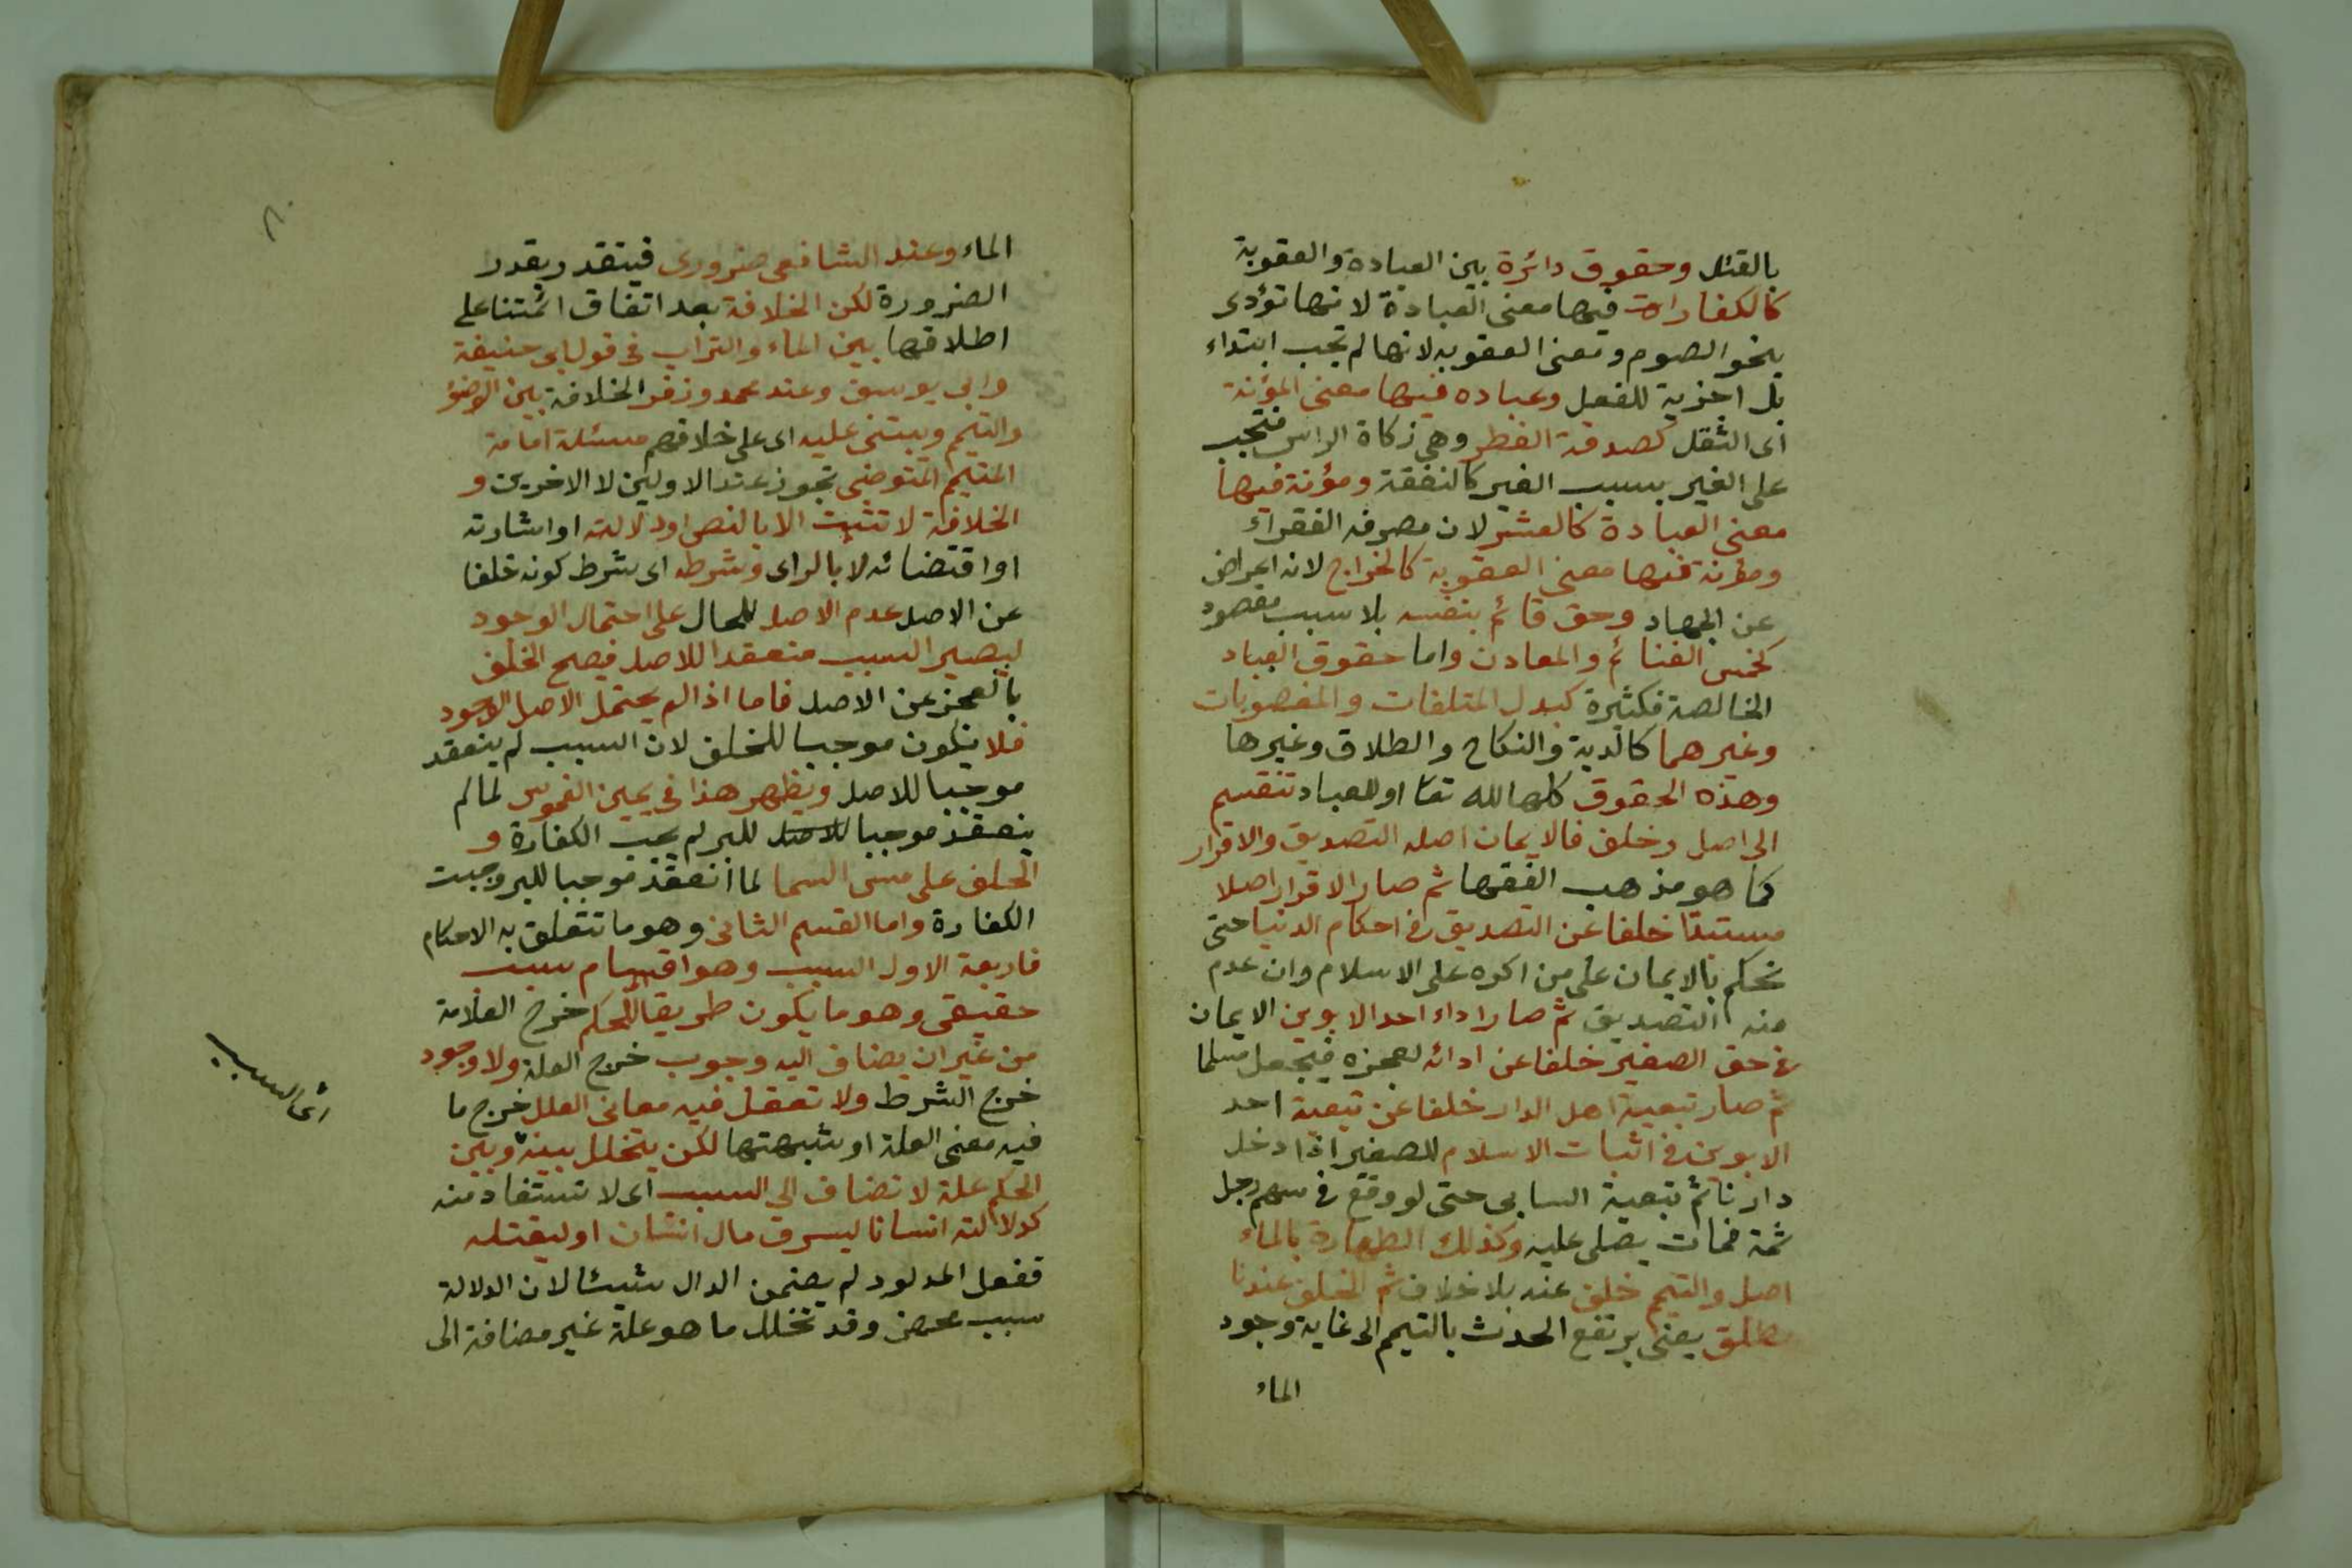 بالقتل وحقوق دائرة بين العبادة والعقوبة
كالكفارات فيها معنى العبادة لانها تؤدى
بنحو الصوم ومعنى العقوبه لانها لم تجب ابتداء
بل اجزية للفعل وعباده فيها معنى المؤنة
اى الثقل كصدقة الفطر وهى زكاة الراس فتجب
على الغير بسبب الغير كالنفقة ومؤنة فيها
معنى العبادة كالعشر لان مصرفه الفقراء
ومؤنة فيها معنى العقوبة كالخراج لانه اعراض
عن الجهاد وحق قائم بنفسه بلا سبب مقصود
كخمس الغنائم والمعادن واما حقوق العباد
الخالصة فكثيرة كبدل المتلفات والمغصوبات
وغيرهما كالدية والنكاح والطلاق وغيرها
وهذه الحقوق كلها لله تعا او للعباد تنقسم
الى اصل وخلف فالايمان اصله التصديق والاقرار
كما هو مذهب الفقها ثم صار الاقرار اصلا
مستبدا خلفا عن التصديق فى احكام الدنيا حتى
نحكم بالايمان على من اكره على الاسلام وان عدم
منه التصديق ثم صار اداء احد الابوين الايمان
فى حق الصغير خلفا عن ادائه لعجزه فيجعل مسلما
ثم صار تبعية اهل الدار خلفا عن تبعية احد
الابوين فى اثبات الاسلام للصغير اذا دخل
دارنا ثم تبعية السابى حتى لو وقع فى سهم رجل
ثمة فمات يصلى عليه وكذلك الطهارة بالماء
اصل والتيمم خلف عنه بلا خلاف ثم الخلف عندنا
مطلق يعنى يرتفع الحدث بالتيمم الى غاية وجود
الماء
٨٠
الماء وعند الشافعى ضرورى فيتقدر بقدر
الضرورة لكن الخلافة بعد اتفاق ائمتنا على
اطلاقها بين الماء والتراب فى قول ابى حنيفة
وابى يوسف وعند محمد وزفر الخلافة بين الوضؤ
والتيمم ويبتنى عليه اى على خلافهم مسئلة امامة
المتيمم المتوضى تجوز عند الاولين لا الاخرين و
الخلافة لا تثبت الا بالنص او دلالته او اشارته
او اقتضائه لا بالراى وشرطه اى شرط كونه خلفا
عن الاصل عدم الاصل للحال على احتمال الوجود
ليصير السبب منعقدا للاصل فيصح الخلف
بالعجز عن الاصل فاما اذا لم يحتمل الاصل الوجود
فلا يكون موجبا للخلف لان السبب لم ينعقد
موجبا للاصل ويظهر هذا فى يمين الغموس لما لم
ينعقد موجبا للاصل للبر لم يجب الكفارة و
الحلف على مس السما لما انعقد موجبا للبر وجبت
الكفارة واما القسم الثانى وهو ما تتعلق به الاحكام
فاربعة الاول السبب وهو اقسام سبب
حقيقى وهو ما يكون طريقا للحكم خرج العلامة
من غير ان يضاف اليه وجوب خرج العلة ولا وجود
خرج الشرط ولا تعقل فيه معانى العلل خرج ما
فيه معنى العلة او شبهتها لكن يتخلل بينه وبين
اى السبب
الحكم علة لا تضاف الى السبب اى لا تستفاد منه
كدلالته انسانا ليسرق مال انسان او ليقتله
ففعل المدلود لم يضمن الدال شيئا لان الدلالة
سبب محض وقد تخلل ما هو علة غير مضافة الى